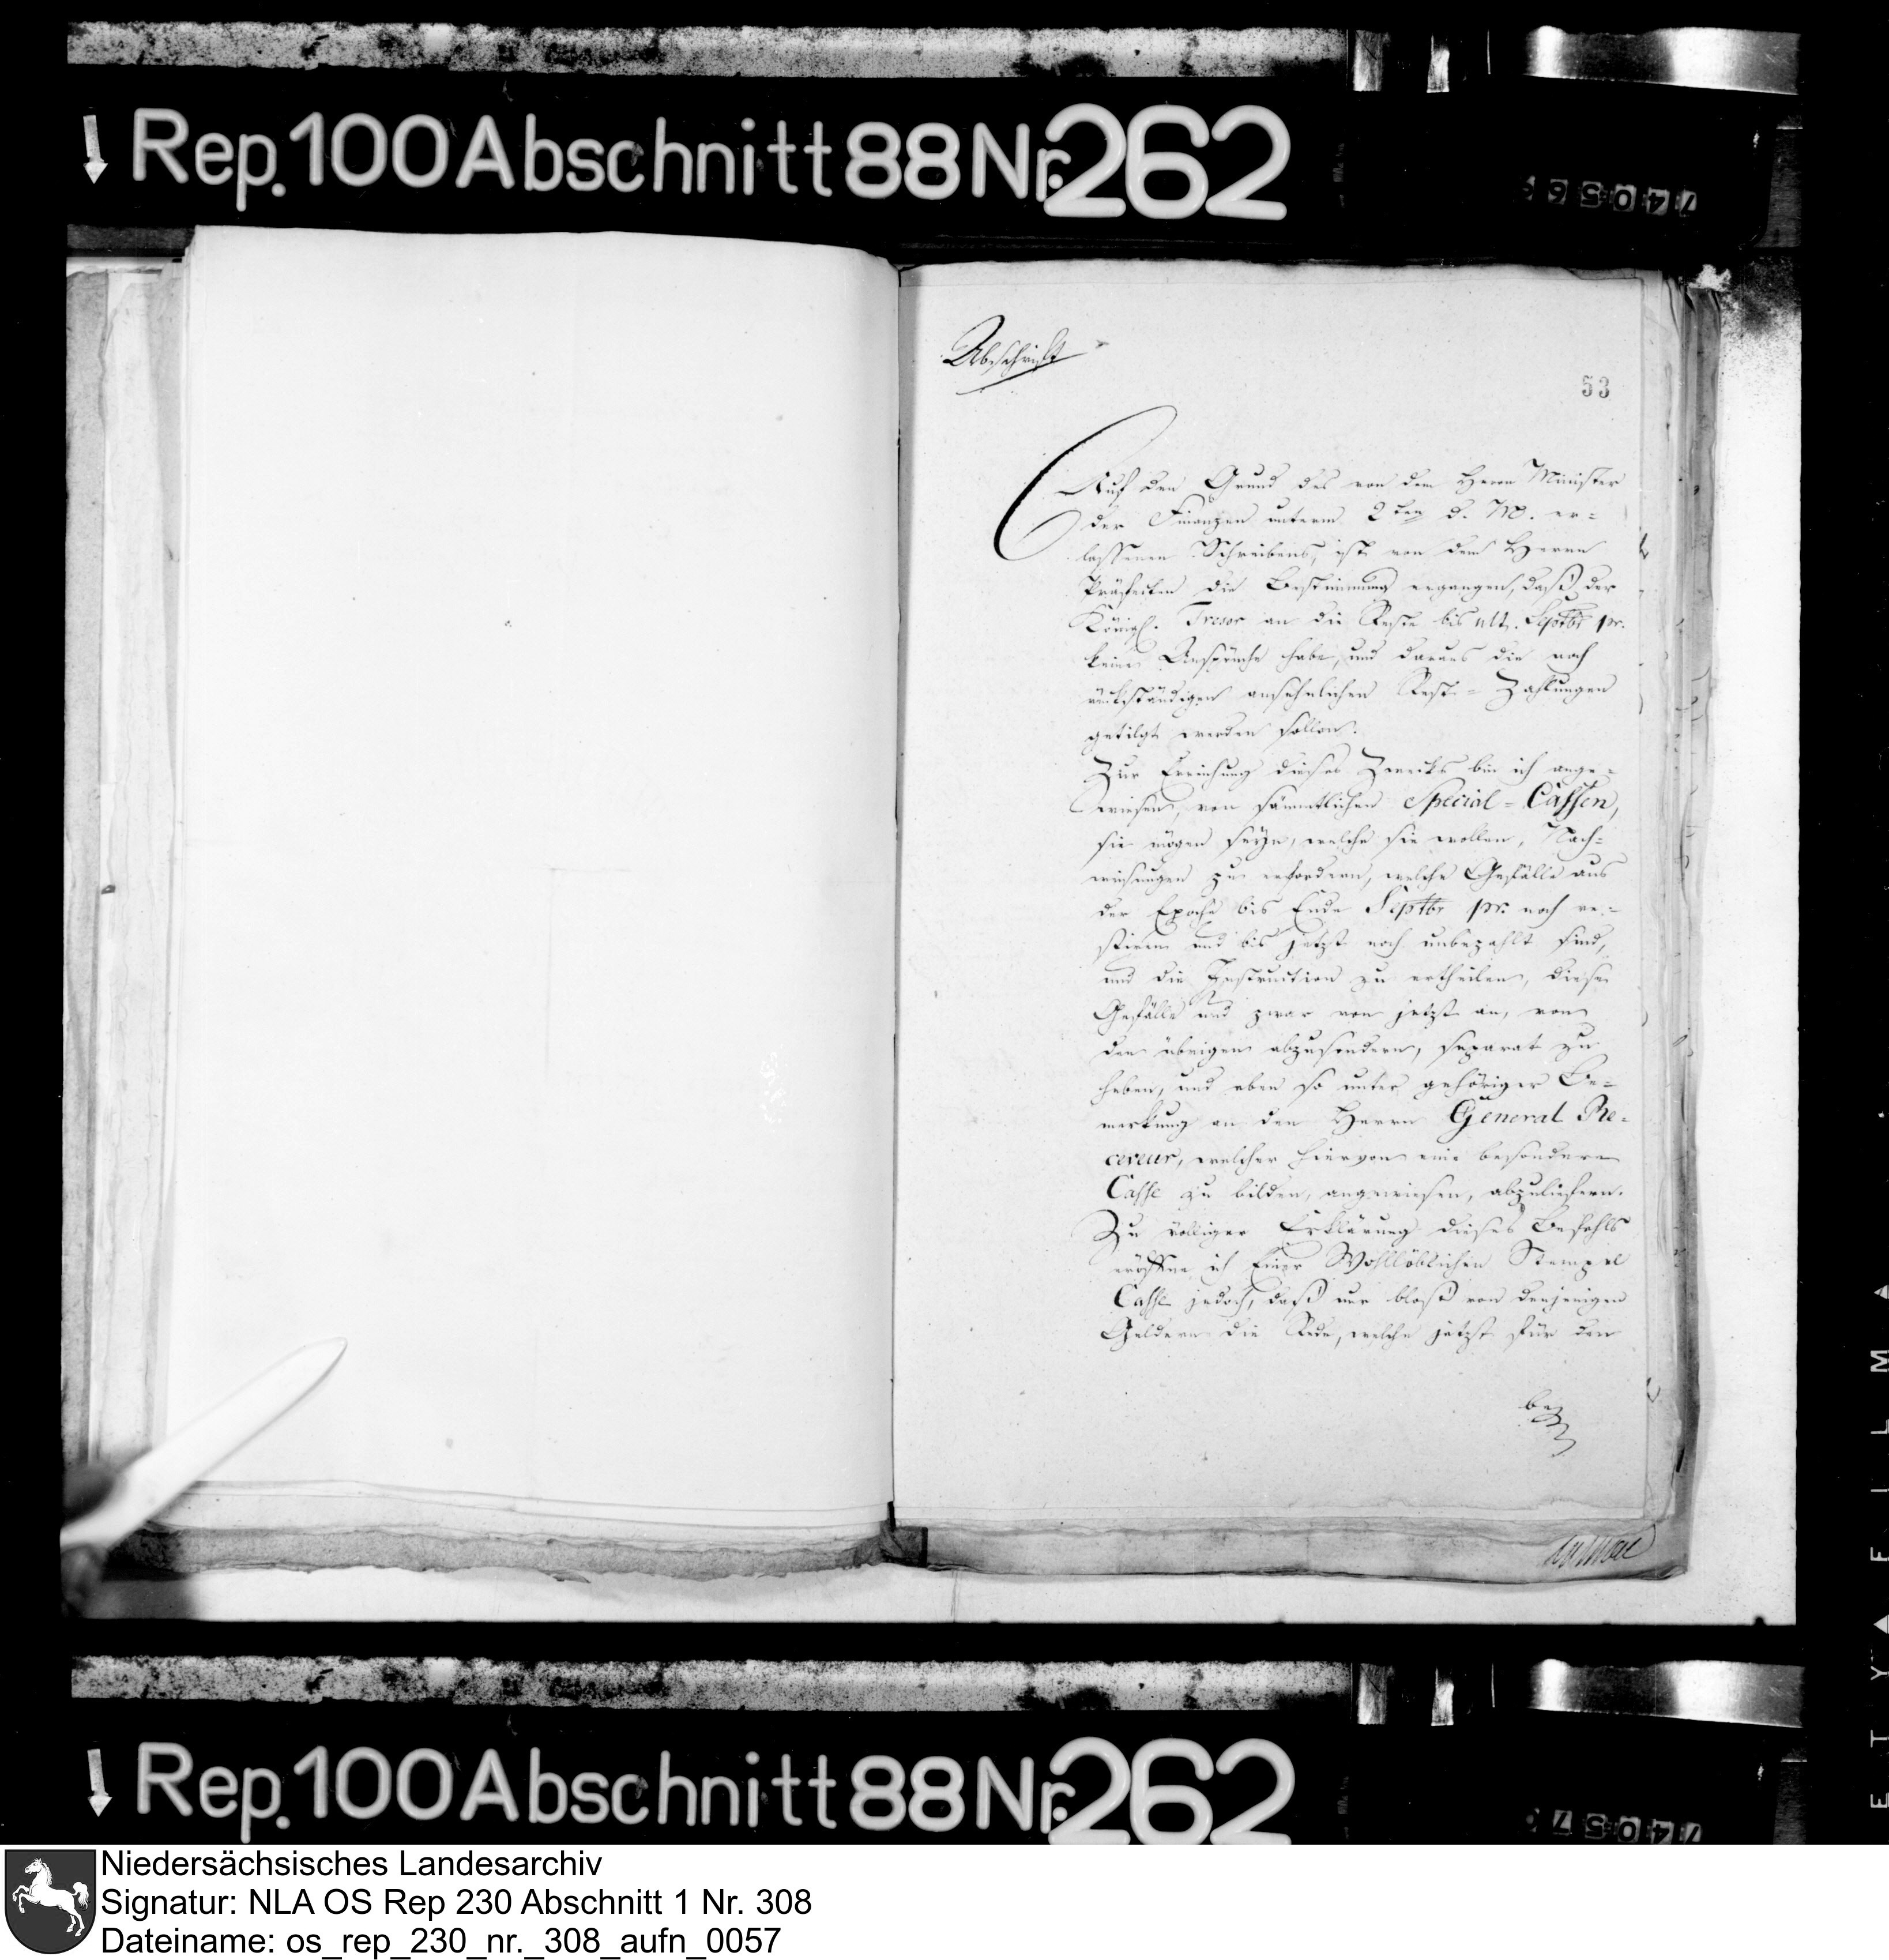 Rep. 100 Abschnitt 88 Nr. 262
Abschrift
53
Auf den Grund des von dem Herrn Minister
der Finanzen unterm 2ten d. M. er=
lassenen Schreibens, ist von dem Herrn
Präfecten die Bestimmung ergangen, daß der
Königl. Tresor an die Reste bis ult. Septbr pr.
keine Ansprüche habe, und daraus die noch
rückständigen ansehnlichen Rest=Zahlungen
getilgt werden sollen.
Zur Erreichung dieses Zwecks bin ich ange=
wiesen, von sämmtlichen Special=Cassen,
sie mögen seyn, welche sie wollen, Nach=
weisungen zu erfordern, welche Gefälle aus
der Epoche bis Ende Septbr pr. noch re=
stiren und bis jetzt noch unbezahlt sind,
und die Instruction zu ertheilen, diese
Gefälle und zwar von jetzt an, von
den übrigen abzusondern, separat zu
heben, und eben so unter gehöriger Be=
merkung an den Herrn General Re=
ceveur, welcher hiervon eine besondere
Casse zu bilden, angewiesen, abzuliefern.
Zu völliger Erklärung dieses Befehls
eröffne ich Einer Wohllöblichen Stempel
Casse jedoch, daß nur bloß von denjenigen
Geldern die Rede, welche jetzt für den
be
Rep. 100 Abschnitt 88 Nr. 262
Niedersächsisches Landesarchiv
Signatur: NLA OS Rep 230 Abschnitt 1 Nr. 308
Dateiname: os_rep_230_nr._308_aufn_0057